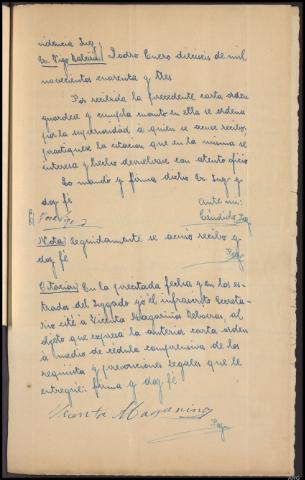 videncia Juez
Sr. Vigo Balcira/ Dodro Enero dieciseis de mil
novecientos cuarenta y tres
Por recibida la precedente carta orden
guardese y cumpla cuanto en ella se ordena
por la superioridad a quien se acuse recibo,
practiquese la citacion que en la misma se
interesa y hecho devuelvase con atento oficio
Lo mando y firma dicho Sr. Juez y
doy fé
Ante mi:
Cándido Paz
Nota: Seguidamente se acusó recibo y
doy fé
Paz
Citacion: En la precitada fecha y en los es-
trados del Juzgado yo el infrascrito Secreta-
rio cité a Vicenta Magariños Reboiras, al
objeto que expresa la anterior carta orden
a medio de cédula comprensiva de los
requisitos y prevenciones legales que le
entregué: firma y doy fé
Vicenta Magarinos
Paz